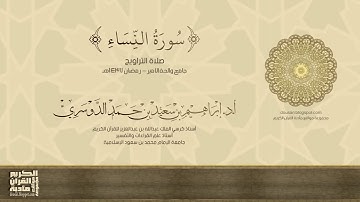 سُورَةُ النِّسَاءِ
صلاة التراويح
جامع والدة الأمير – رمضان ١٤٣٧هـ
أ.د. إبراهيم بن سعيد بن حمد الدوسري
أستاذ كرسي الملك عبدالله بن عبدالعزيز للقرآن الكريم
أستاذ علم القراءات والتفسير
جامعة الإمام محمد بن سعود الإسلامية